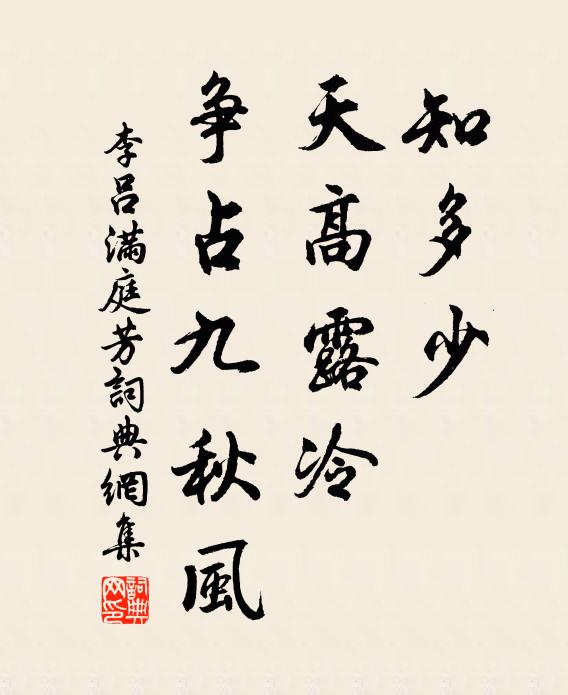 知多少
天高露冷
争占九秋風
李吕滿庭芳詞典網集
詞典
网印